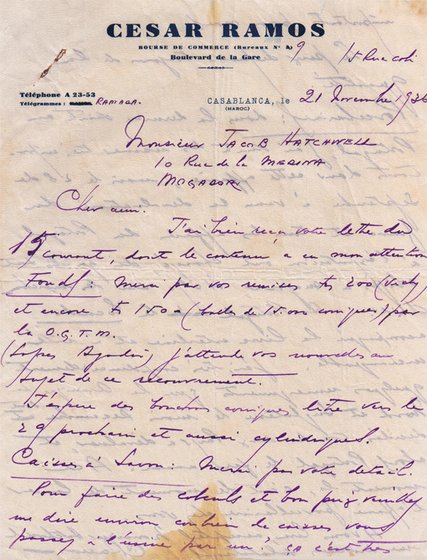 CESAR RAMOS
BOURSE DE COMMERCE (Bureaux Nº 8) 9 15 Rue
Boulevard de la Gare
Téléphone A 23-53
Télégrammes : RAMAGA.
CASABLANCA, le 21 Novembre 1936
(MAROC)
Monsieur JACOB HATCHWELL
10 Rue de la MEDINA
MOGADOR
Cher ami.
J'ai bien reçu votre lettre du
15 courant, dont le contenu a eu mon attention
Fonds : Merci par vos remises 200
et encore 150 (balles de 15 coniques) par
la O.G.T.M.
j'attends vos nouvelles au
sujet de ce recouvrement.
J'espère des bouchons coniques litre vers le
29 prochain et aussi cylindriques.
Caisses à Savon : Merci par votre détail.
Pour faire des calculs et bon prix veuillez
me dire environ combien de caisses vous
à l'usine par un